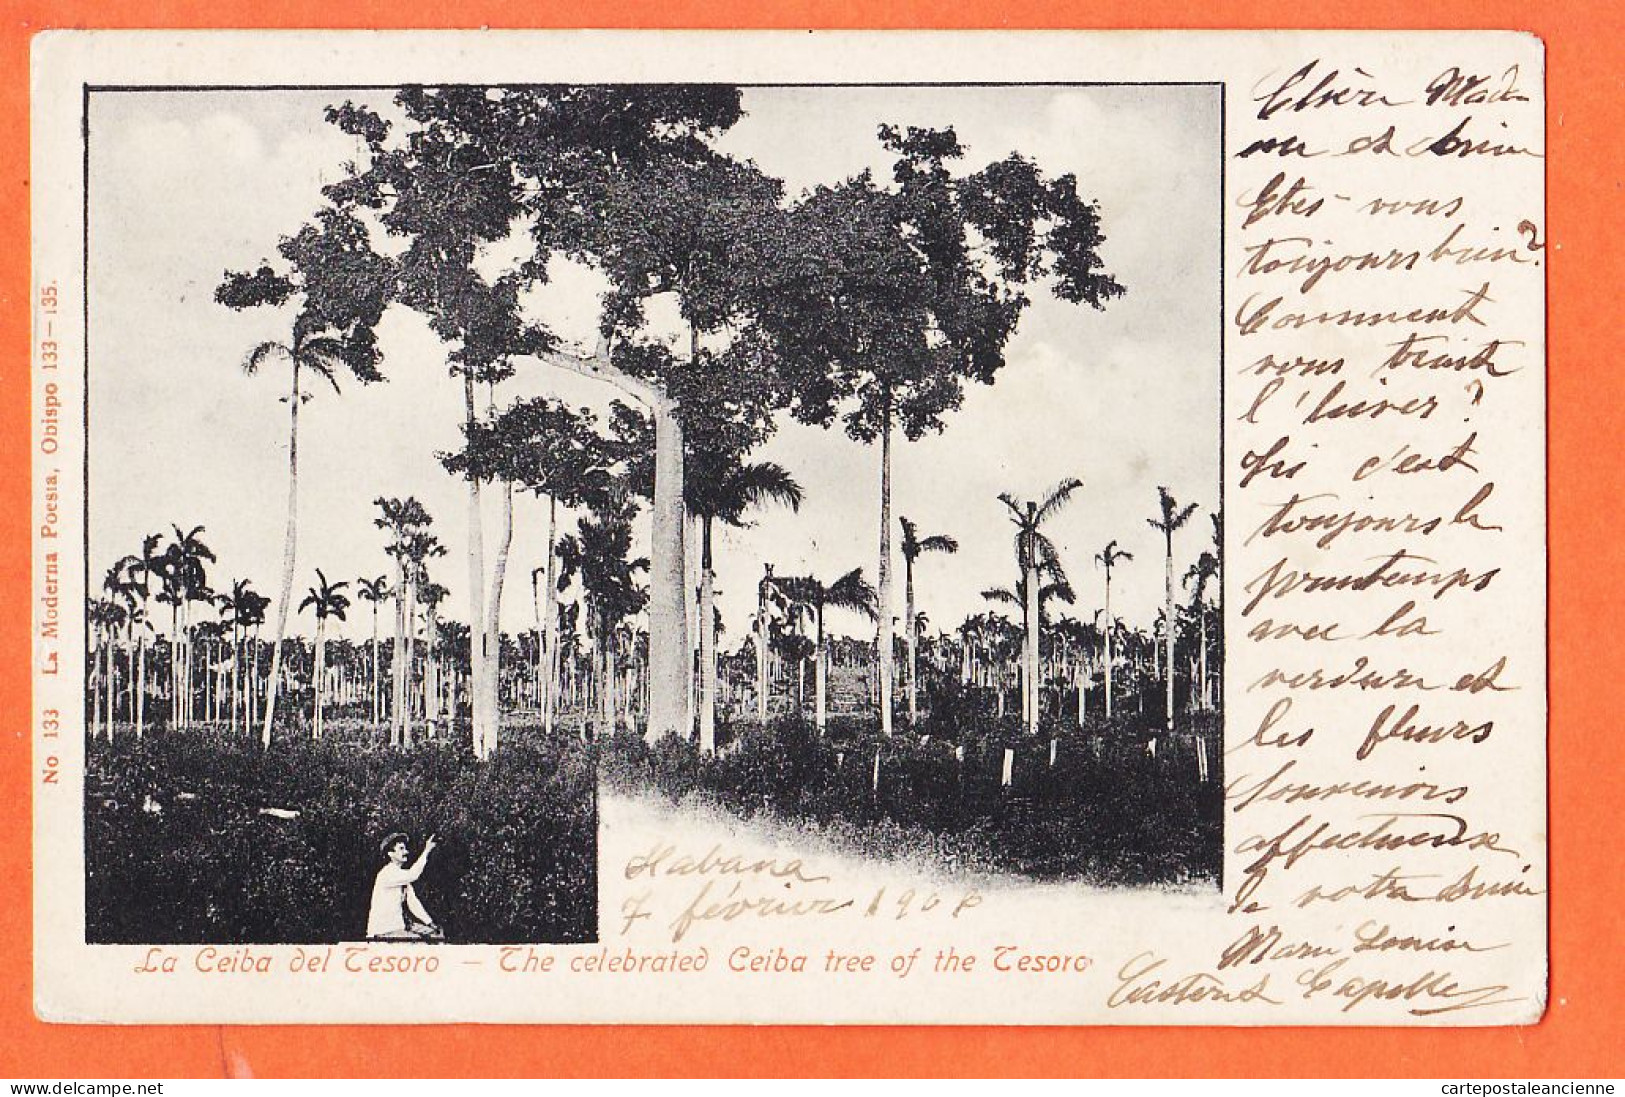 No 133 La Moderna Poesia, Obispo 133–135.
Chère Mada
me et amie
Etes-vous
toujours bien?
Comment
vous traite
l'hiver?
Ici c'est
toujours le
printemps
avec la
verdure et
les fleurs
Souvenirs
affectueux
de votre amie
Marie Louise
Capelle
Habana
7 février 1906
La Ceiba del Tesoro – The celebrated Ceiba tree of the Tesoro
cartepostaleancienne